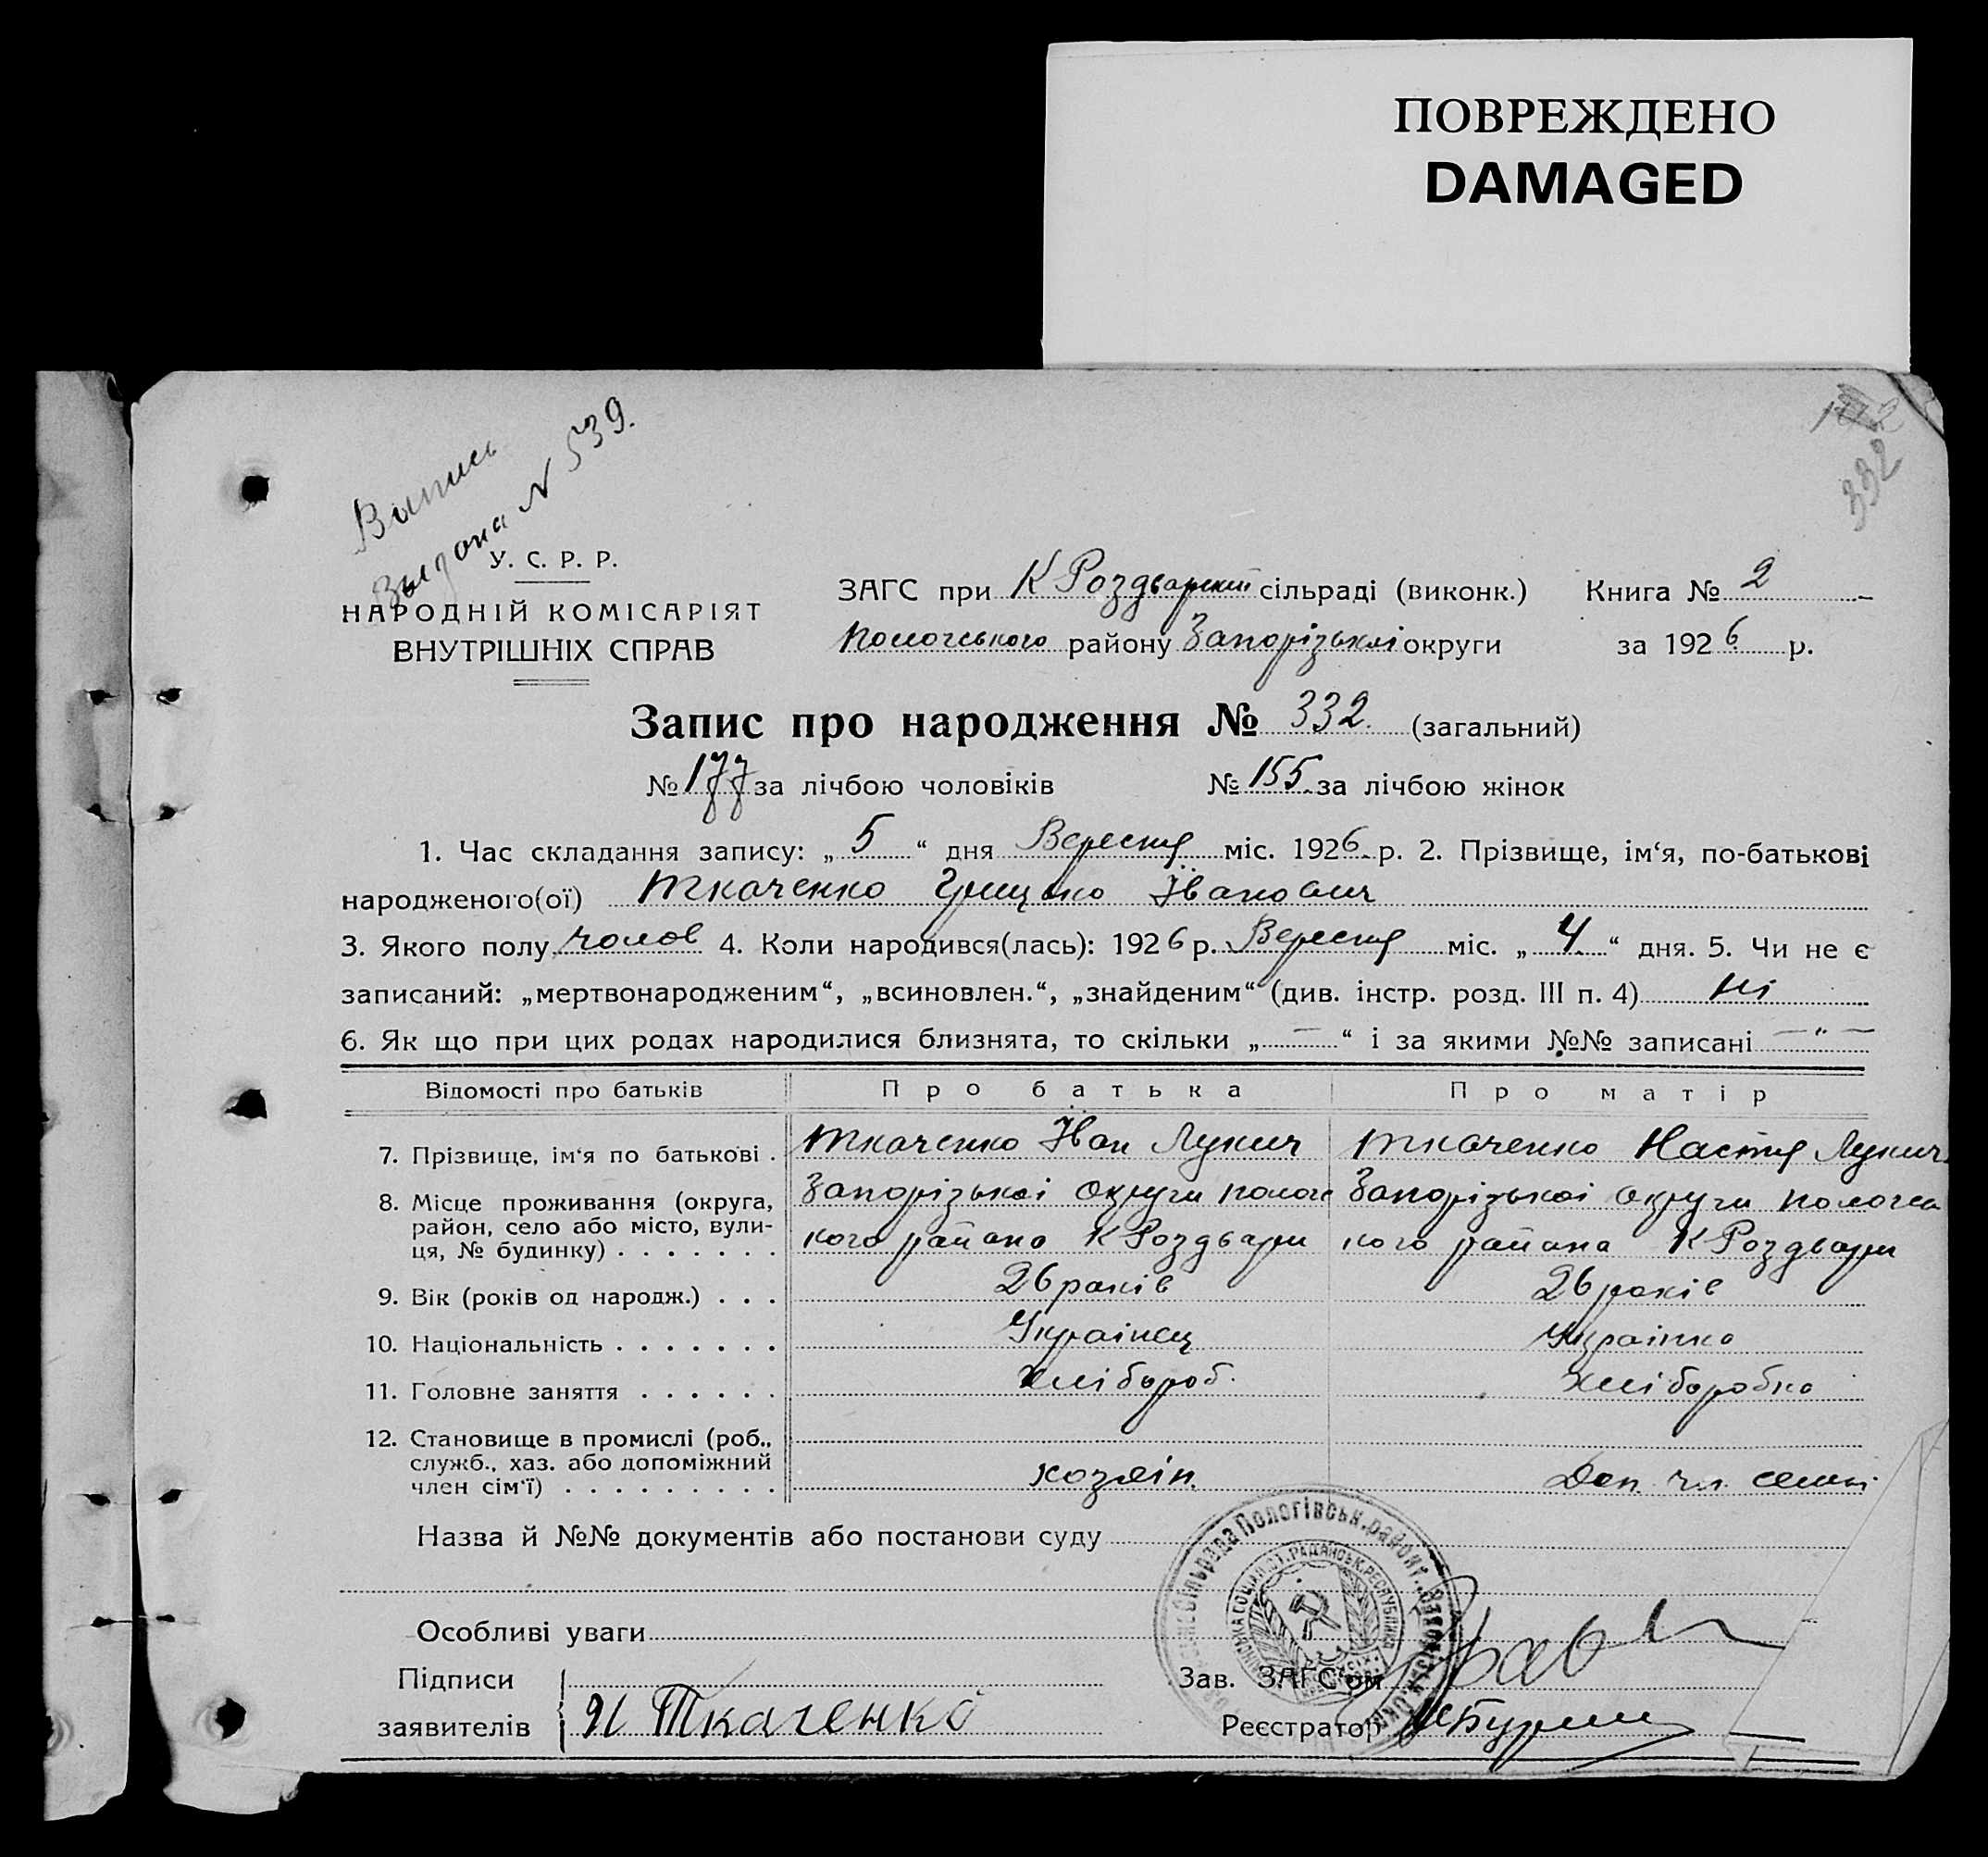 ПОВРЕЖДЕНО
DAMAGED
332
Выпись
выдана N 539.
У. С. Р. Р.
НАРОДНІЙ КОМІСАРІЯТ
ВНУТРІШНІХ СПРАВ
ЗАГС при К Роздварській сільраді (виконк.) Книга № 2
Пологського району Запорізькоі округи за 1926 р.
Запис про народження № 332. (загальний)
№ 177 за лічбою чоловіків № 155. за лічбою жінок
1. Час складання запису: „ 5 “ дня Вересня міс. 1926 р. 2. Прізвище, ім‘я, по-батькові
народженого(ої) Ткаченко Грицько Іванович
3. Якого полу чолов 4. Коли народився(лась): 1926 р. Вересня міс. „ 4 “ дня. 5. Чи не є
записаний: „мертвонародженим“, „всиновлен.“, „знайденим“ (див. інстр. розд. III п. 4) ні
6. Як що при цих родах народилися близнята, то скільки „ — “ і за якими №№ записані — “ —
Відомості про батьків Про батька Про матір
7. Прізвище, ім‘я по батькові . Ткаченко Іван Лукич Ткаченко Настя Лукич
8. Місце проживання (округа, Запорізькоі округи пологс Запорізькоі округи пологсь
район, село або місто, вули-
ця, № будинку) . . . . . . . кого района К Роздвари кого района К Роздвари
9. Вік (років од народж.) . . . 26 років 26 років
10. Національність . . . . . . . Украінец Украінка
11. Головне заняття . . . . . . хлібороб. хліборобка
12. Становище в промислі (роб.,
служб., хаз. або допоміжний
член сім‘ї) . . . . . . . . . хозяін. Доп. чл. семьі
Назва й №№ документів або постанови суду
сільрада Пологівськ. району, Запорізьк. окр.
УКРАЇНСЬКА СОЦІЯЛІСТ. РАДЯНСЬК. РЕСПУБЛІКА
Особливі уваги
Підписи
Зав. ЗАГС‘ом
заявителів И Ткаченко Реєстратор